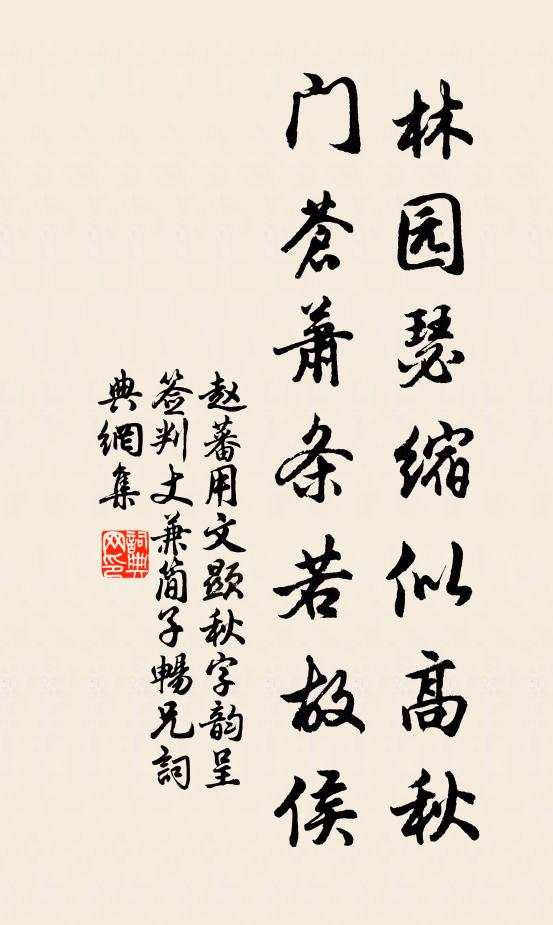 林园瑟缩似高秋
门苍萧条若故侯
赵蕃用文显秋字韵呈
签判丈兼简子畅兄词
典網集
詞典
网印